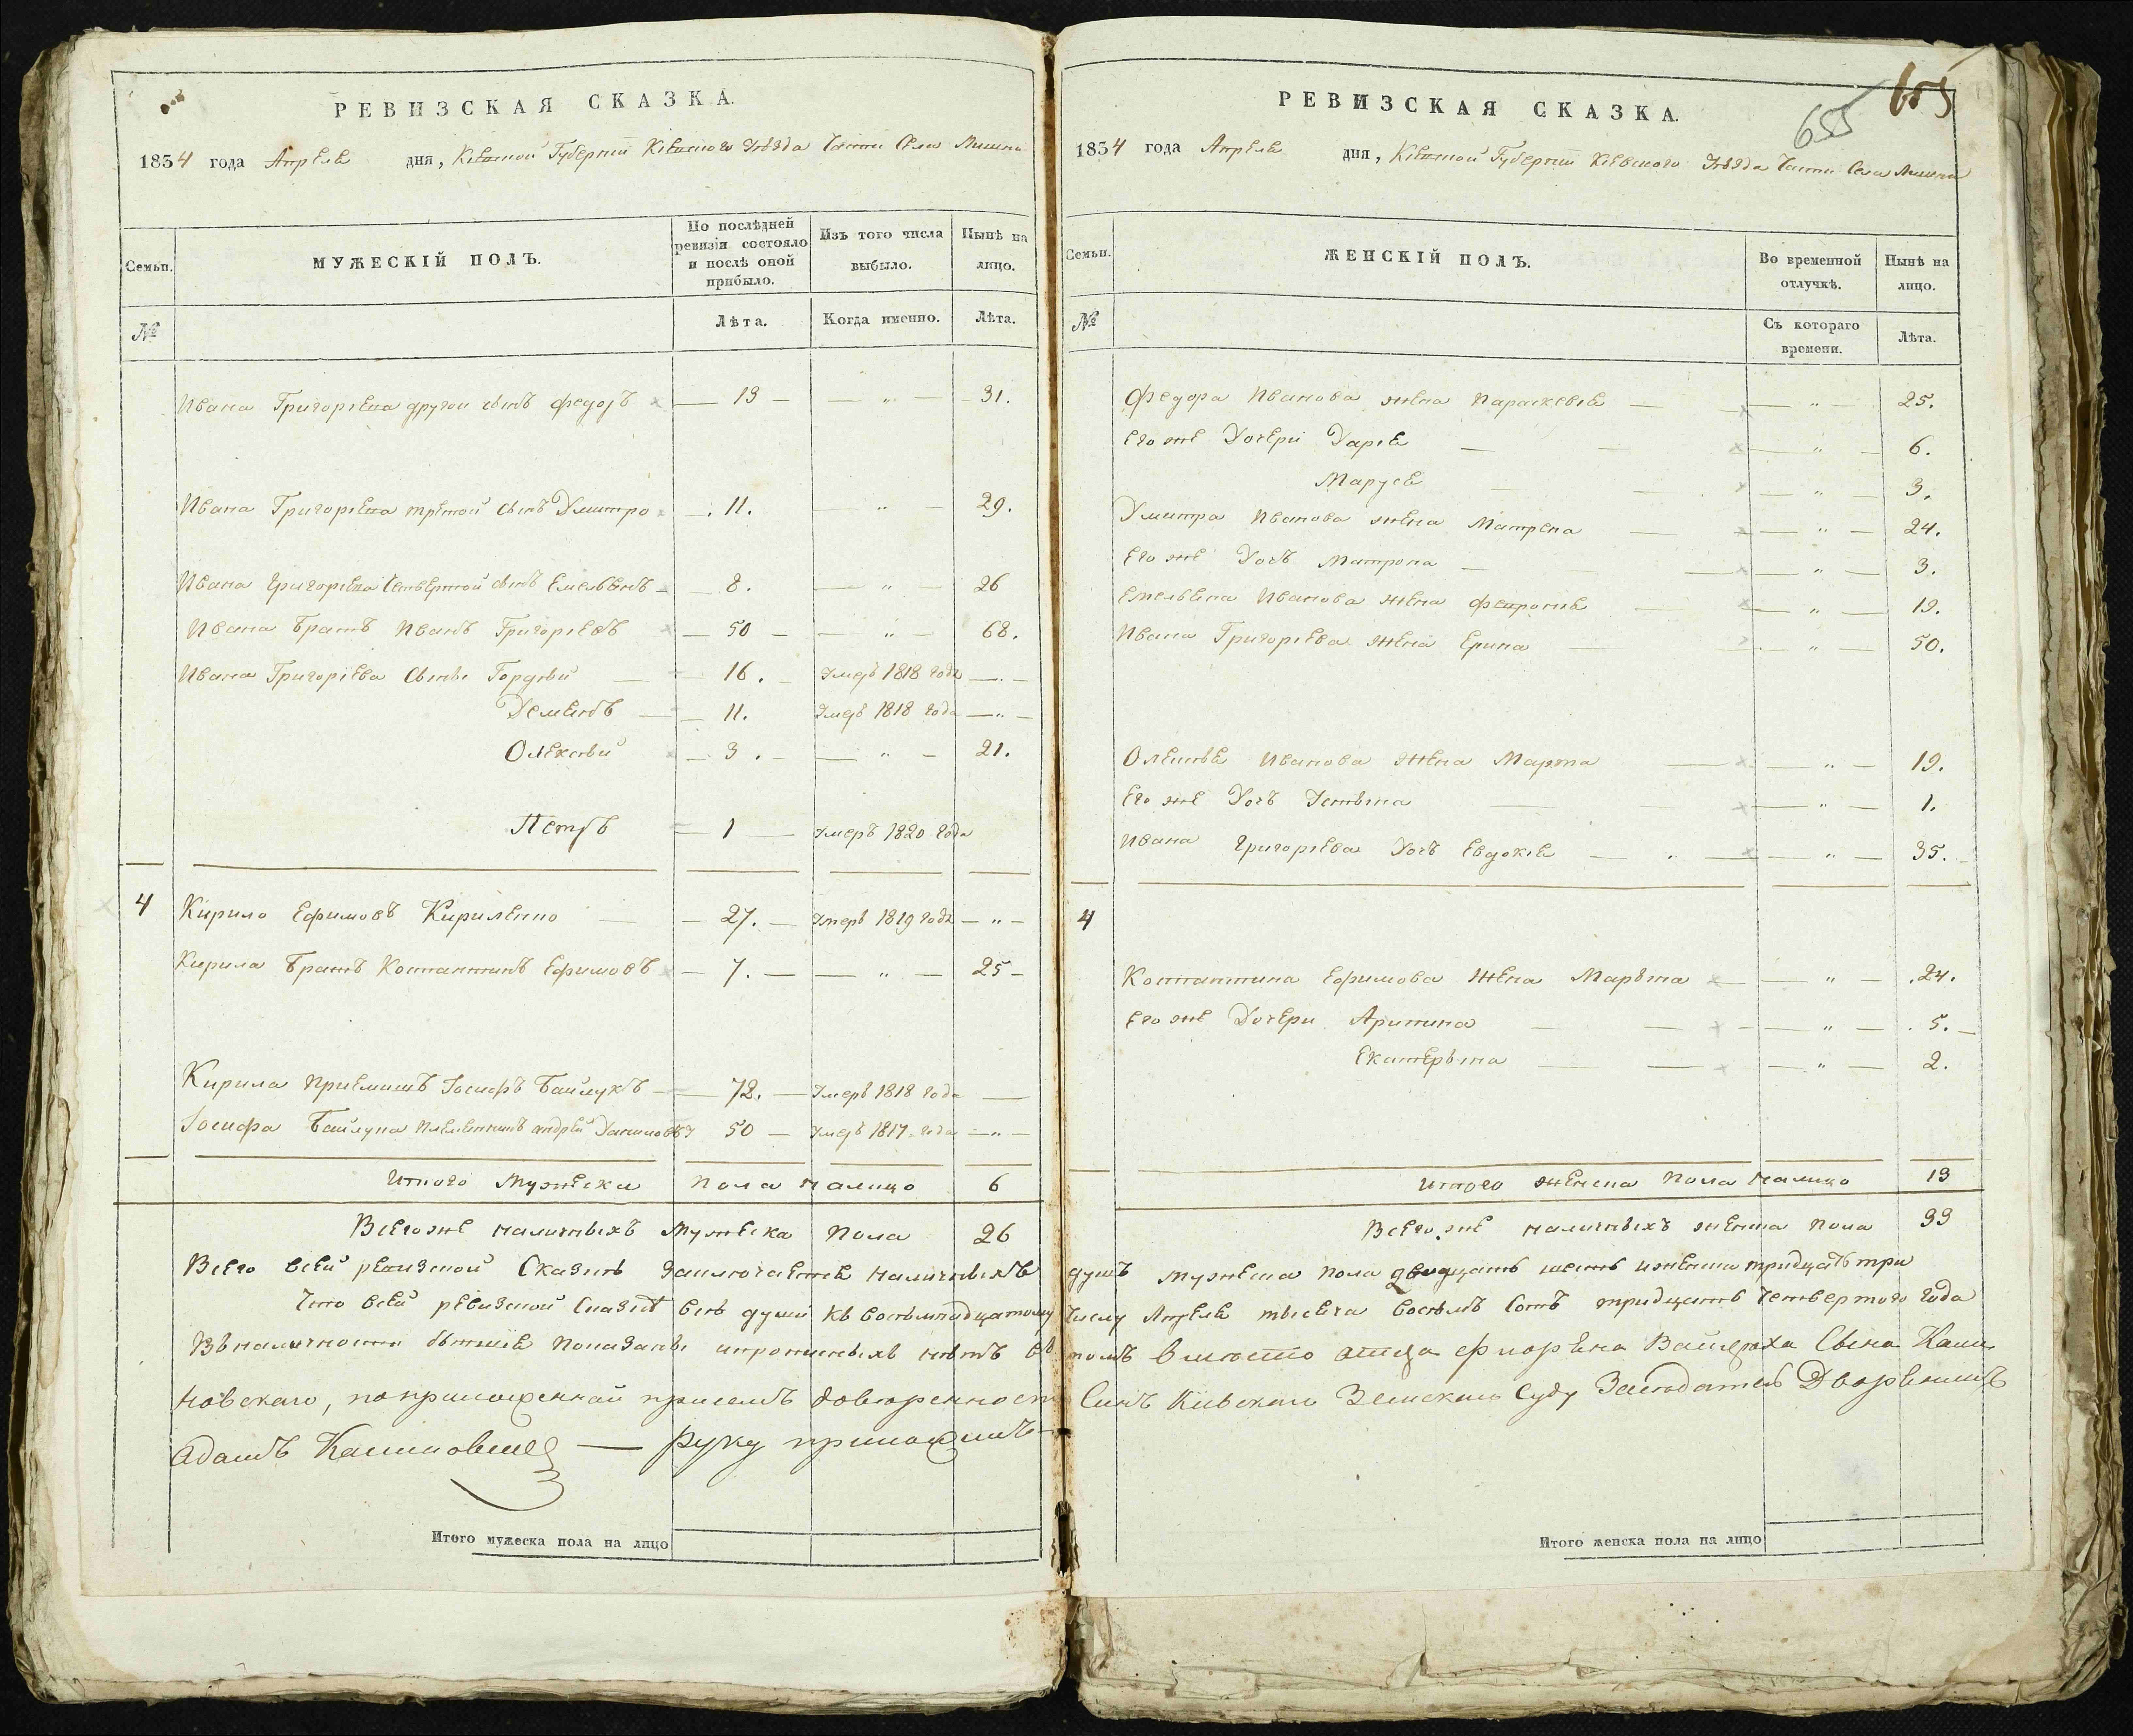 РЕВИЗСКАЯ СКАЗКА.
1834 года Апреля дня, Кіевской Губерніи Кіевского Уѣзда Части Села
Семьи.
МУЖЕСКІЙ ПОЛЪ.
По послѣдней ревизіи состояло и послѣ оной прибыло.
Изъ того числа выбыло.
Нынѣ на лицо.
№
Лѣта.
Когда именно.
Лѣта.
Ивана Григоріева другой сынъ Федоръ — 13 — — „ — 31.
Ивана Григоріева третой сынъ Дмитро — 11. — „ — 29.
Ивана Григоріева Четвертой сынъ Емельянъ — 8. — „ — 26
Ивана Братъ Иванъ Григоріевъ — 50 — — „ — 68.
Ивана Григоріева Сыны Гордѣй — 16. — Умеръ 1818 года — . —
Демянъ — 11. Умеръ 1818 года — „ —
Олексѣй — 3. — — „ — 21.
Петръ — 1 — Умеръ 1820 года
4 Кирило Ефимовъ Кириленко — 27. — Умеръ 1819 года — „ —
Кирила Братъ Костантинъ Ефимовъ — 7. — — „ — 25 —
Кирила Приемышъ Іосифъ — 72. — Умеръ 1818 года —
Іосифа Племенникъ андрей Даниловъ 50 — Умеръ 1817 года — „ —
Итого Мужеска пола налицо 6
Всего же наличныхъ Мужеска пола 26
РЕВИЗСКАЯ СКАЗКА.
655 655
1834 года Апреля дня, Кіевской Губерніи Кіевского Уѣзда Части Села
Семьи.
ЖЕНСКІЙ ПОЛЪ.
Во временной отлучкѣ.
Нынѣ на лицо.
№
Съ котораго времени.
Лѣта.
Федора Иванова жена Параскевія — — „ — 25.
Его же Дочери Дарія — — — „ — 6.
Маруся — — — „ — 3.
Дмитра Иванова жена Матрена — — „ — 24.
Его же Дочь Матрона — — — „ — 3.
Емельяна Иванова жена — — „ — 19.
Ивана Григоріева жена Ерина — — — „ — 50.
Олексѣя Иванова жена Марта — — „ — 19.
Его же Дочь — — — „ — 1.
Ивана Григоріева Дочь Евдокія — „ — — „ — 35. —
4
Костантина Ефимова жена — — „ — .24.
Его же Дочери — — — „ — . 5. —
— — — „ — 2.
Итого женска пола налицо 13
Всего же наличныхъ женска пола 33
Всего всей ревизской Сказкѣ заключается наличныхъ душъ мужеска пола двадцать шесть и женска тридцать три
Что всей ревизской Сказкѣ всѣ души къ восемнадцатому числу Апреля тысяча восемь сотъ тридцать четвертого года
Въ наличности бытные Показаны ипрописныхъ нѣтъ въ томъ вместо отца Сына
новскаго, поприложенной присемъ доверенности Кіевскому Земскому Суду Дворянинъ
Адамъ — Руку приложилъ
Итого мужеска пола на лицо
Итого женска пола на лицо